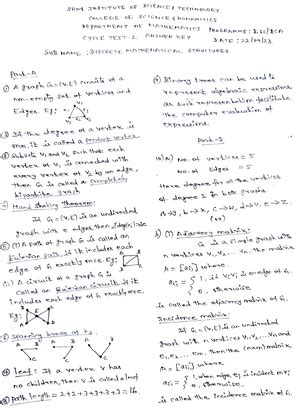 SRM INSTITUTE OF SCIENCE & TECHNOLOGY
COLLEGE OF SCIENCE & HUMANITIES
DEPARTMENT OF MATHEMATICS PROGRAMME: B.Sc/BCA
CYCLE TEST-2, ANSWER KEY DATE: 22/09/23
SUB NAME: DISCRETE MATHEMATICAL STRUCTURES
Part-A
① A graph G=(V,E) consists of a
non-empty set of vertices and
Edges. Eg:
② If the degree of a vertex is
one, it is called a pendant vertex.
③ Subsets V₁ and V₂ such that each
vertex of V₁ is connected with
every vertex of V₂ by an edge,
then G is called a completely
bipartite graph.
④ Hand Shaking theorem:
If G=(V,E) is an undirected
graph with e edges then
(i) A path of graph G is called an
Eulerian path, if it includes each
edge of G exactly once. Eg:
(ii) A circuit of a graph G is
called an Eulerian circuit, if it
includes each edge of G exactly once.
Eg:
Spanning trees of K₃
leaf: If a vertex v has
no children, then v is called a leaf
Path length = 2+2+3+3+3+3 = 16.
Binary trees can be used to
represent algebraic expressions
as such representation facilitate
the computer evaluation of
expressions.
Part-B
a) No of vertices = 5
No of edges = 5
Here degree
of degree in both graphs
(or)
b) (i) Adjacency matrix:
G is a simple graph with
n vertices v₁, v₂, ... vₙ, the matrix
A = [aᵢⱼ] where,
aᵢⱼ = { 1, if vᵢvⱼ is an edge of G
0, otherwise,
is called the adjacency matrix of G.
Incidence matrix:
If G=(V,E) is an undirected
graph with n vertices v₁, v₂, ... vₙ and
e₁, e₂, ... eₘ, then the (nxm) matrix
A = [aᵢⱼ], where
aᵢⱼ = { 1, when edge eⱼ is incident on vᵢ
0, otherwise,
is called the incidence matrix of G.